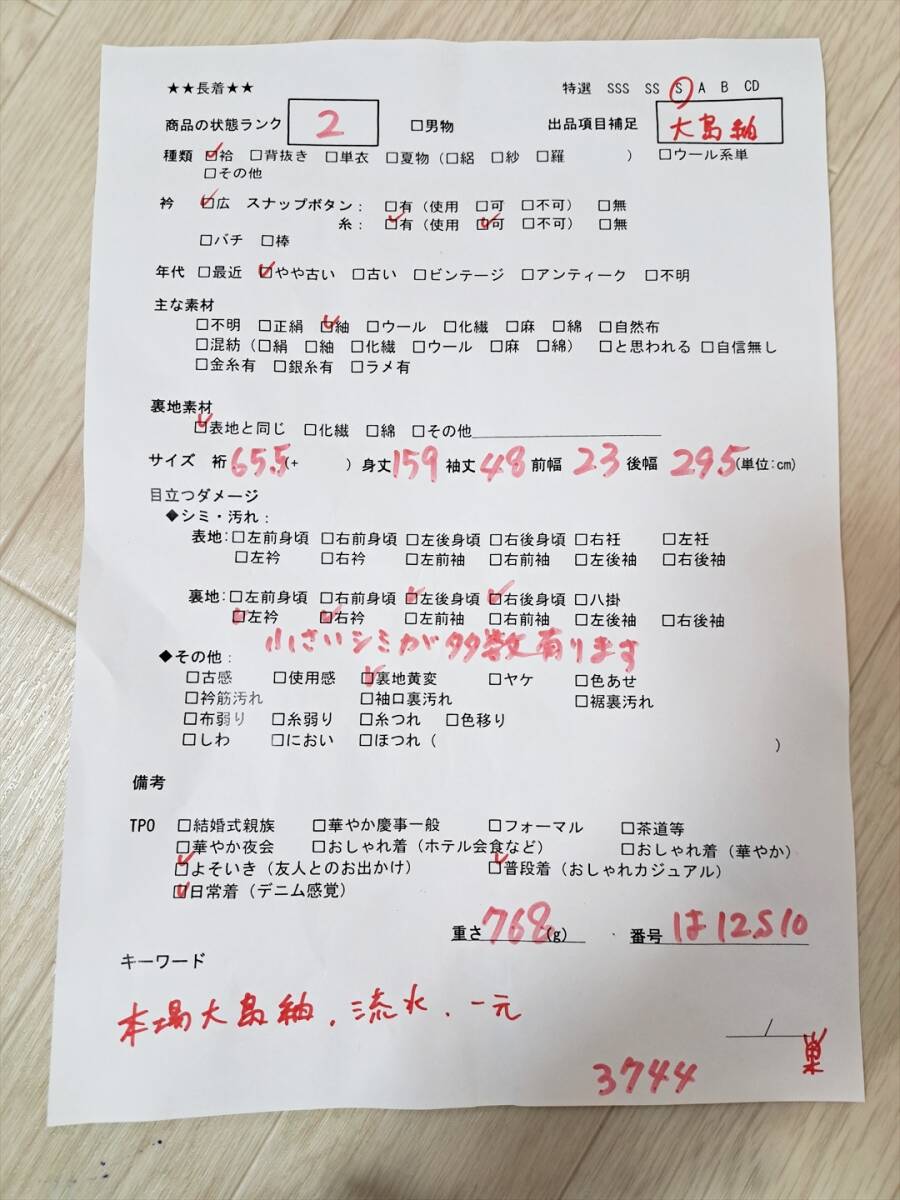 ★★長着★★ 特選 SSS SS S A B CD
商品の状態ランク 2 □男物 出品項目補足 大島紬
種類 ☑袷 □背抜き □単衣 □夏物（□絽 □紗 □羅 ） □ウール系単
□その他
衿 ☑広 スナップボタン： □有（使用 □可 □不可） □無
糸： ☑有（使用 ☑可 □不可） □無
□バチ □棒
年代 □最近 ☑やや古い □古い □ビンテージ □アンティーク □不明
主な素材
□不明 □正絹 ☑紬 □ウール □化繊 □麻 □綿 □自然布
□混紡（□絹 □紬 □化繊 □ウール □麻 □綿） □と思われる □自信無し
□金糸有 □銀糸有 □ラメ有
裏地素材
☑表地と同じ □化繊 □綿 □その他
サイズ 裄 65.5 (+ ) 身丈 159 袖丈 48 前幅 23 後幅 29.5 (単位:cm)
目立つダメージ
◆シミ・汚れ：
表地：□左前身頃 □右前身頃 □左後身頃 □右後身頃 □右衽 □左衽
□左衿 □右衿 □左前袖 □右前袖 □左後袖 □右後袖
裏地：□左前身頃 □右前身頃 ☑左後身頃 ☑右後身頃 □八掛
☑左衿 ☑右衿 □左前袖 □右前袖 □左後袖 □右後袖
小さいシミが多数有ります
◆その他：
□古感 □使用感 ☑裏地黄変 □ヤケ □色あせ
□衿筋汚れ □袖口裏汚れ □裾裏汚れ
□布弱り □糸弱り □糸つれ □色移り
□しわ □におい □ほつれ（ ）
備考
TPO □結婚式親族 □華やか慶事一般 □フォーマル □茶道等
□華やか夜会 □おしゃれ着（ホテル会食など） □おしゃれ着（華やか）
☑よそいき（友人とのお出かけ） ☑普段着（おしゃれカジュアル）
☑日常着（デニム感覚）
重さ 768 (g) 番号 は12510
キーワード
本場大島紬、流水、一元
/
3744